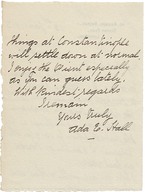 things at Constantinople
will settle down at normal
I enjoy the Orient especially
as you can guess lately.
With kindest regards
I remain
Yours truly
Ada E. Hall